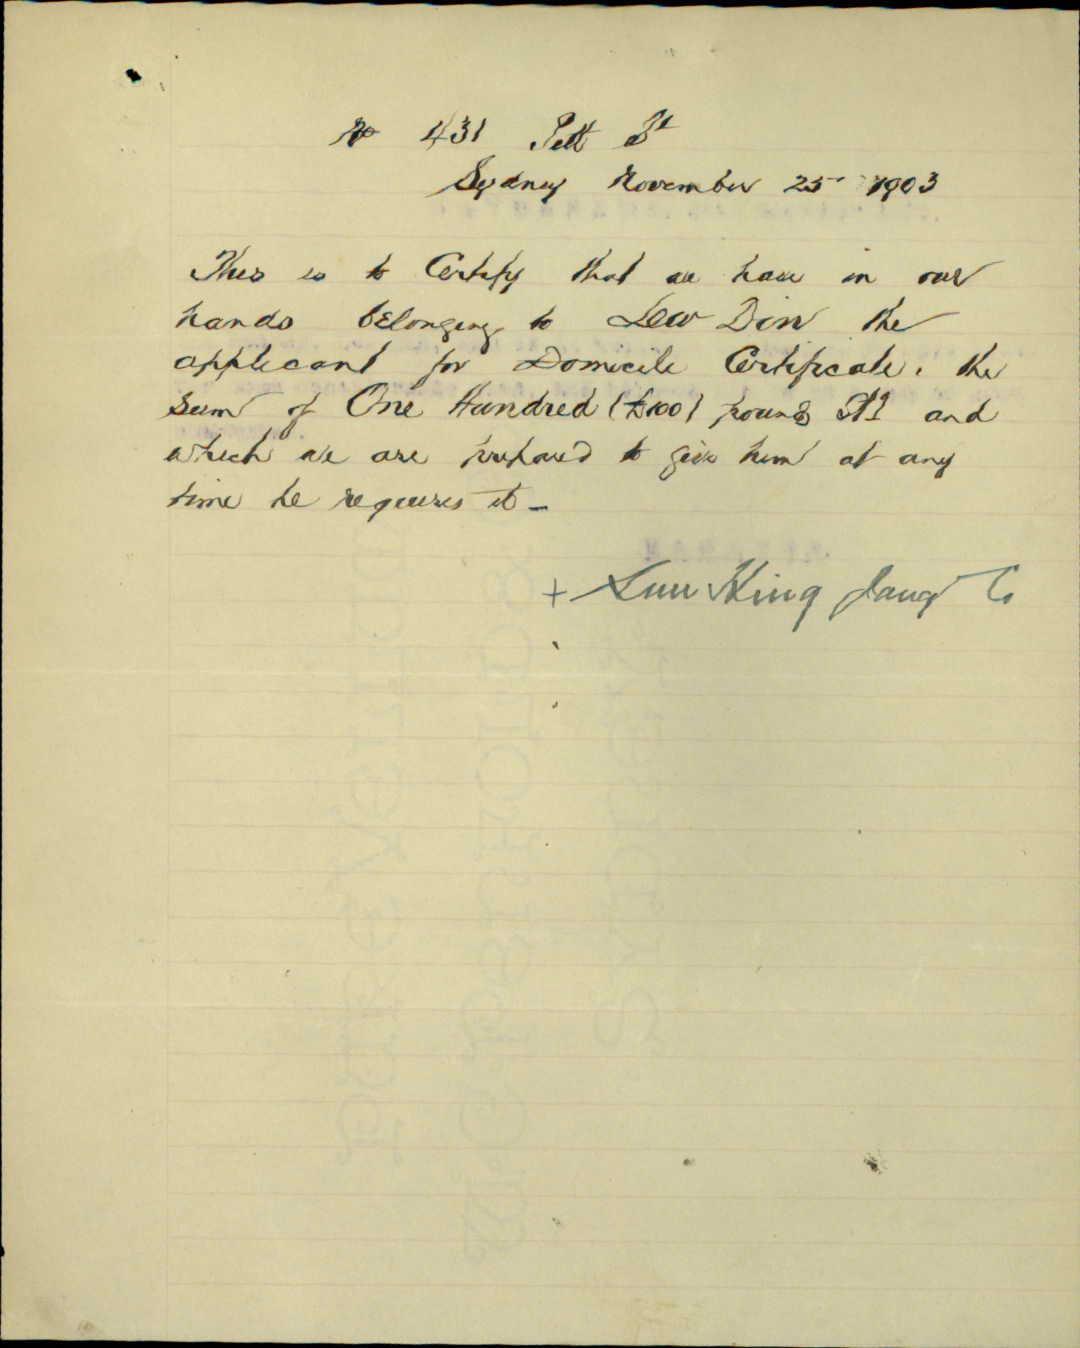 No 431 Pitt St
Sydney November 25 1903
This is to Certify that we have in our
hands belonging to Lew Din the
applicant for Domicile Certificate, the
sum of One Hundred (£100) pounds Stg and
which we are prepared to give him at any
time he requires it –
+ Sun Hing Jang Co